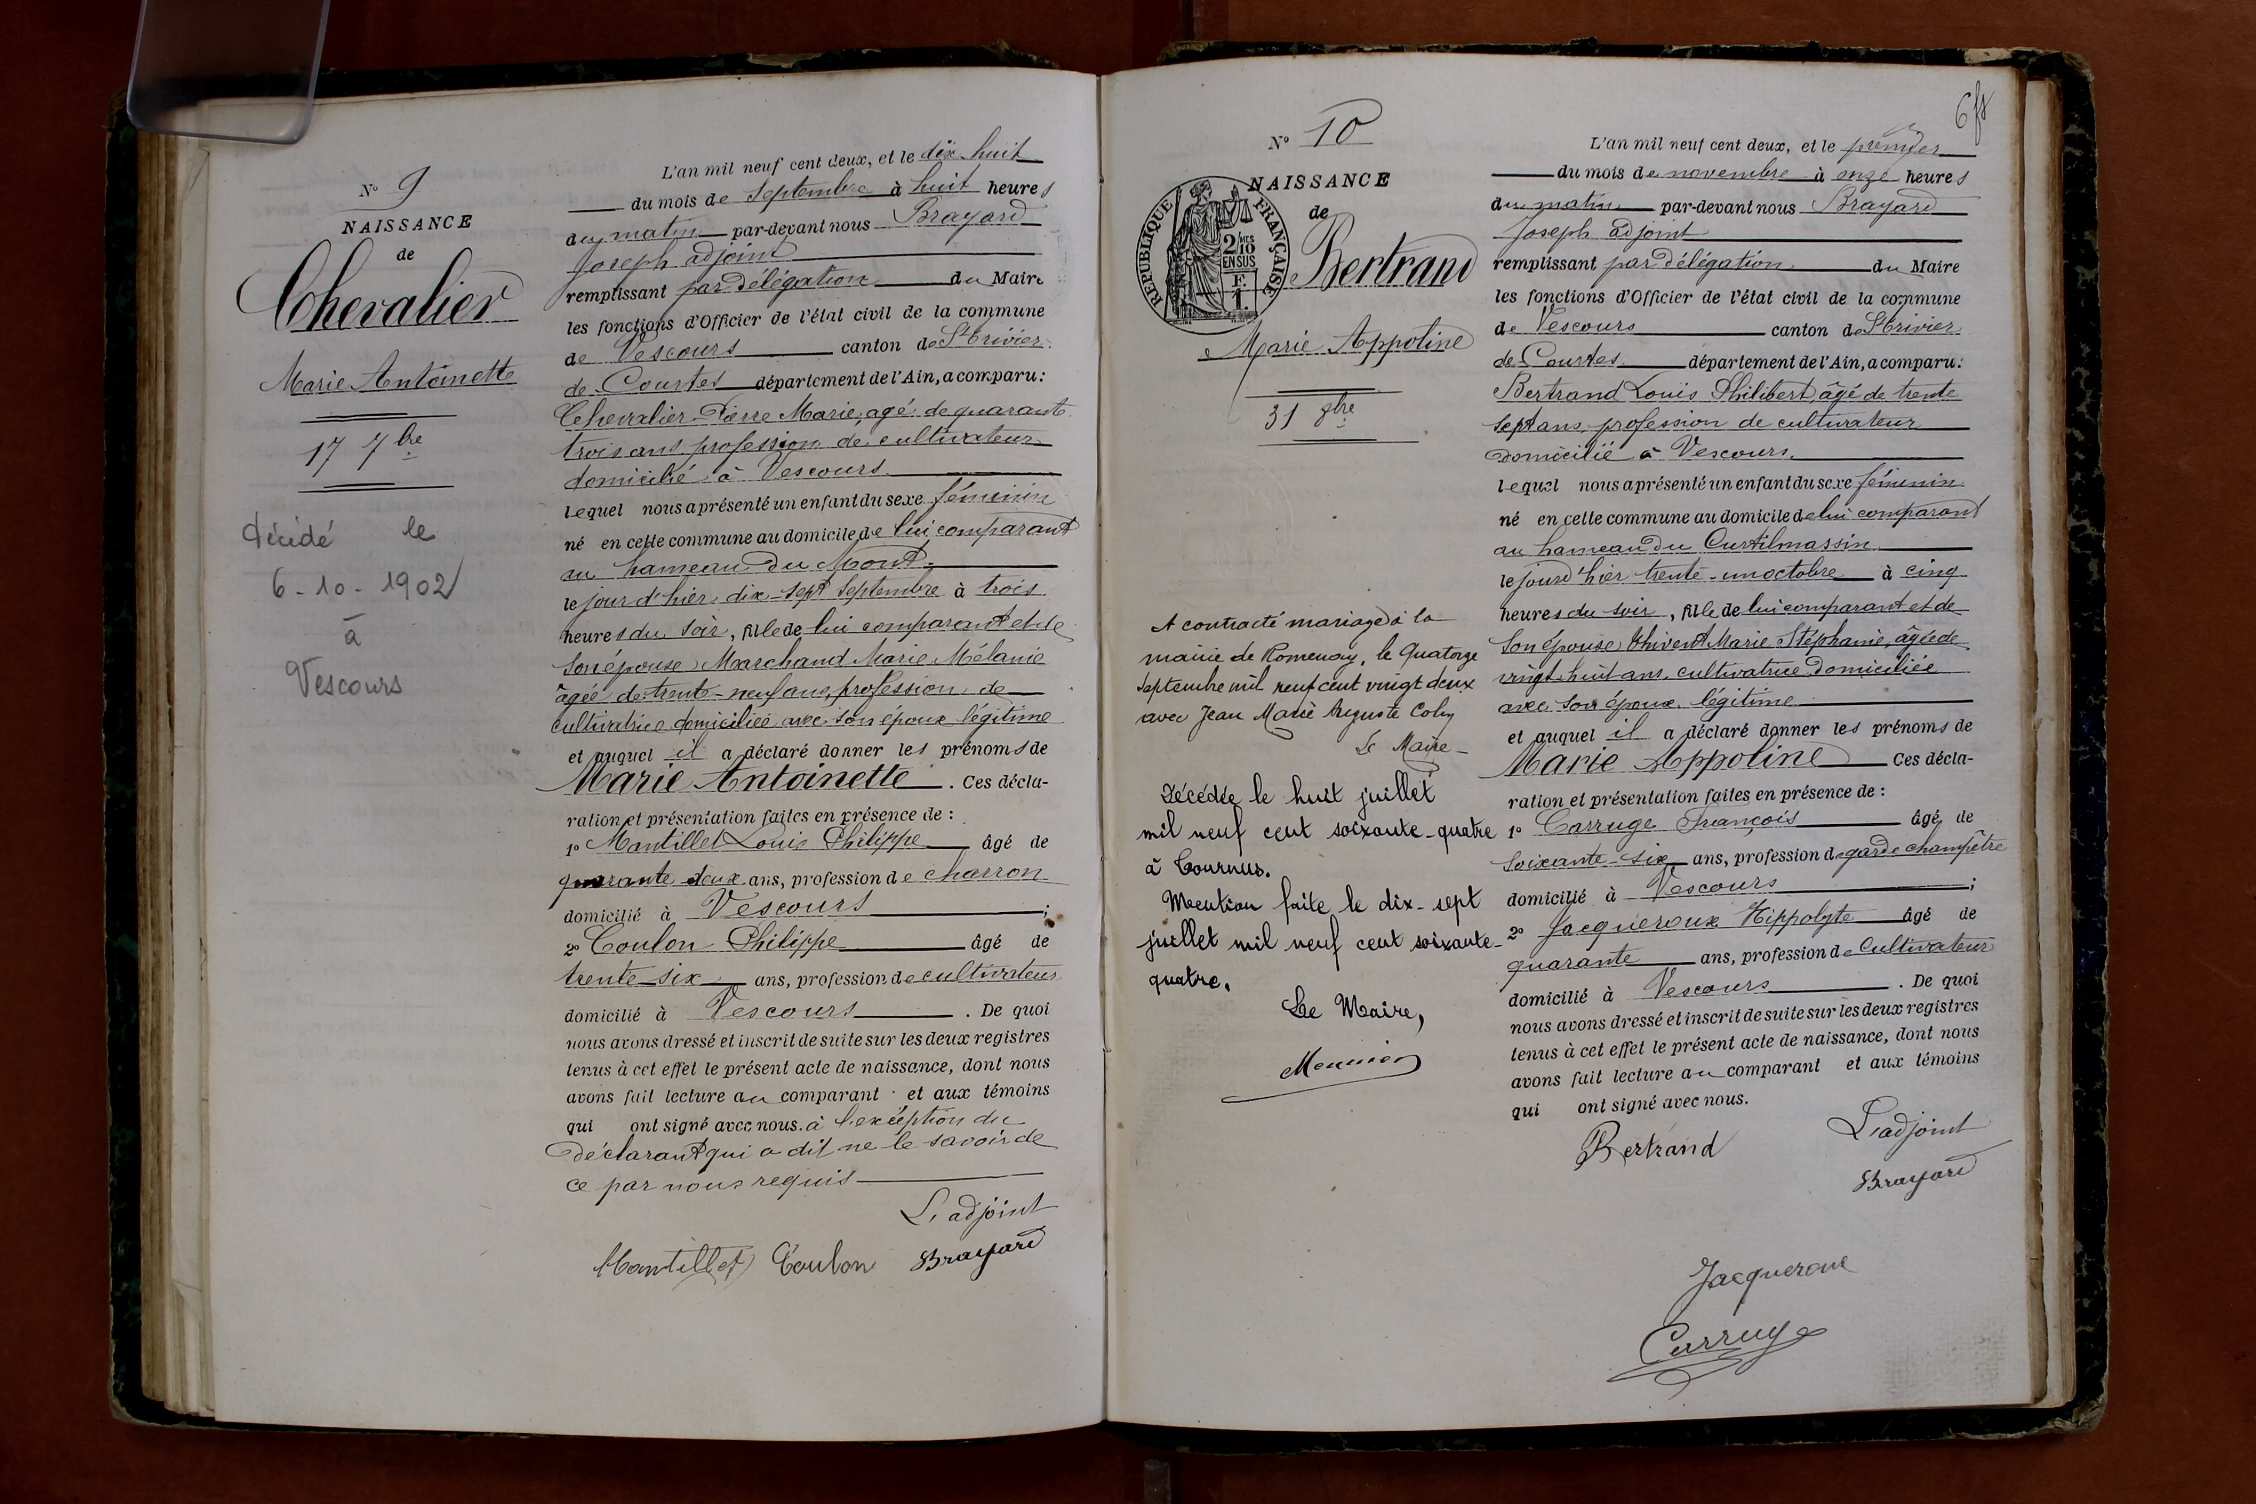 N° 9
NAISSANCE
de
Chevalier
Marie Antoinette
17 7bre
décédé le
6-10-1902
à
Vescours
L'an mil neuf cent deux, et le dix huit
du mois de Septembre à huit heures
du matin par-devant nous Brayard
Joseph adjoint
remplissant par délégation du Maire
les fonctions d'Officier de l'état civil de la commune
de Vescours canton de St Trivier
de Courtes département de l'Ain, a comparu:
Chevalier Pierre Marie, agé de quarante
trois ans profession de cultivateur
domicilié à Vescours
lequel nous a présenté un enfant du sexe féminin
né en cette commune au domicile de lui comparant
au hameau du Mont
le jour d'hier dix-sept Septembre à trois
heures du soir, fille de lui comparant et de
son épouse Marchand Marie Mélanie
âgée de trente-neuf ans, profession de
cultivatrice domiciliée avec son époux légitime
et auquel il a déclaré donner les prénoms de
Marie Antoinette. Ces décla-
ration et présentation faites en présence de :
1° Mantillet Louis Philippe âgé de
quarante deux ans, profession de charron
domicilié à Vescours ;
2° Coulon Philippe âgé de
trente six ans, profession de cultivateur
domicilié à Vescours. De quoi
nous avons dressé et inscrit de suite sur les deux registres
tenus à cet effet le présent acte de naissance, dont nous
avons fait lecture au comparant et aux témoins
qui ont signé avec nous. à l'exception du
déclarant qui a dit ne le savoir de
ce par nous requis
L'adjoint
Mantillet Coulon Brayard
6
N° 10
NAISSANCE
de
Bertrand
RÉPUBLIQUE FRANÇAISE
2/10 EN SUS
Marie Appoline
31 8bre
A contracté mariage à la
mairie de Romenay, le Quatorze
Septembre mil neuf cent vingt deux
avec Jean Marie Auguste Colin
Le Maire
Décédée le huit juillet
mil neuf cent soixante-quatre
à Tournus.
Mention faite le dix-sept
juillet mil neuf cent soixante-
quatre.
Le Maire,
Meunier
L'an mil neuf cent deux, et le premier
du mois de novembre à onze heures
du matin par-devant nous Brayard
Joseph adjoint
remplissant par délégation du Maire
les fonctions d'Officier de l'état civil de la commune
de Vescours canton de St Trivier
de Courtes département de l'Ain, a comparu:
Bertrand Louis Philibert âgé de trente
sept ans, profession de cultivateur
domicilié à Vescours.
lequel nous a présenté un enfant du sexe féminin
né en cette commune au domicile de lui comparant
au hameau du Curtilmassin
le jour d'hier trente-un octobre à cinq
heures du soir, fille de lui comparant et de
son épouse Thivent Marie Stéphanie, âgée de
vingt-huit ans, cultivatrice domiciliée
avec son époux légitime
et auquel il a déclaré donner les prénoms de
Marie Appoline Ces décla-
ration et présentation faites en présence de :
1° Carruge François âgé de
soixante-six ans, profession de garde champêtre
domicilié à Vescours ;
2° Jacqueroux Hippolyte âgé de
quarante ans, profession de cultivateur
domicilié à Vescours. De quoi
nous avons dressé et inscrit de suite sur les deux registres
tenus à cet effet le présent acte de naissance, dont nous
avons fait lecture au comparant et aux témoins
qui ont signé avec nous.
Bertrand L'adjoint
Brayard
Jacqueroux
Carruge